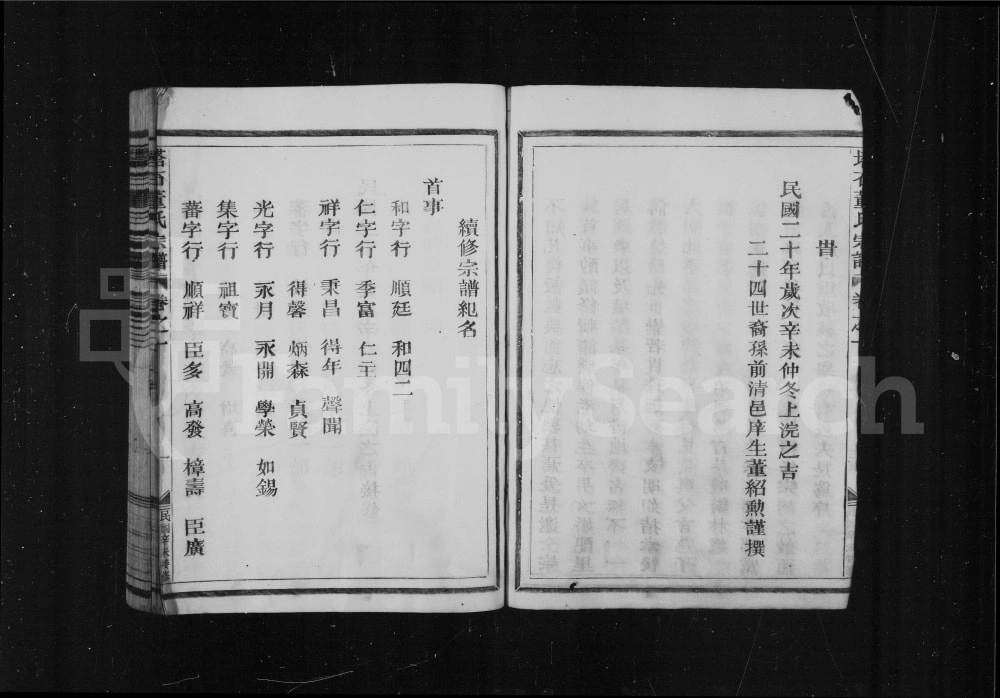 旹
民國二十年歲次辛未仲冬上浣之吉
二十四世裔孫前清邑庠生董紹勲謹撰
續修宗譜紀名
首事
和字行 順廷 和四二
仁字行 季富 仁主
祥字行 秉昌 得年 聲聞
得馨 炳森 貞賢
光字行 永月 永開 學榮 如錫
集字行 祖寶
蕃字行 順祥 臣多 高發 樟壽 臣廣
塔石董氏宗譜 卷之一
FamilySearch